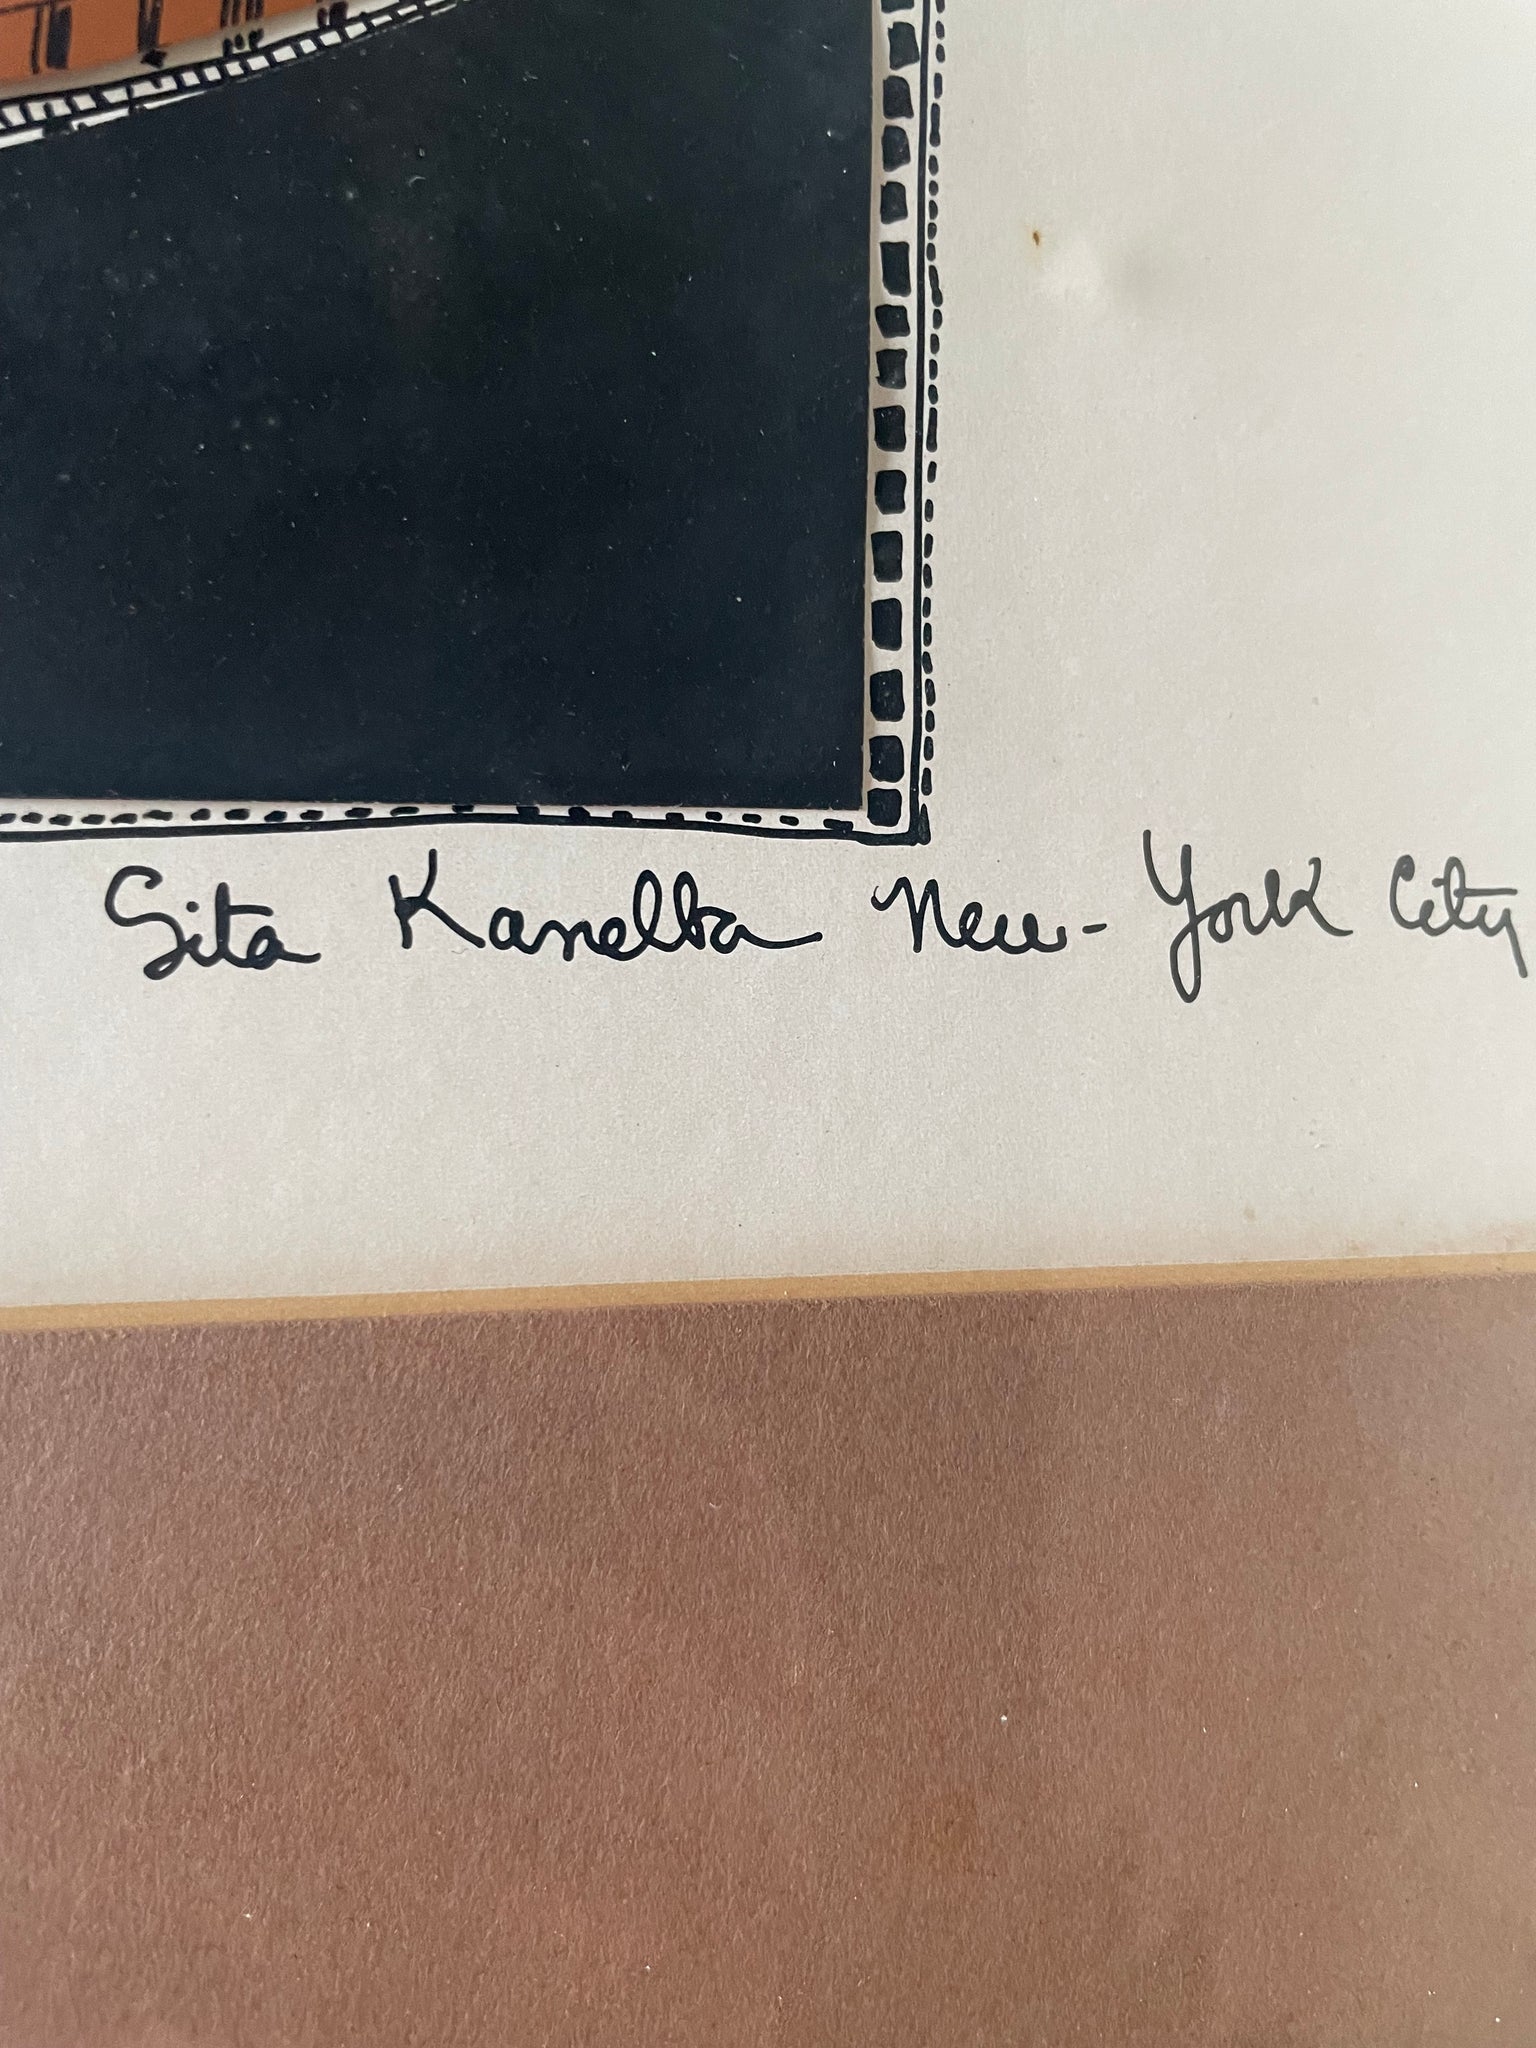 Sita Kanelba New-York City